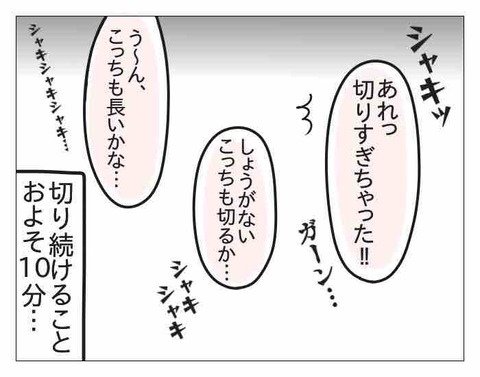 シャキッ
あれっ
切りすぎちゃった!!
ガーン…
しょうがない
こっちも切るか…
シャキ
シャキ
う～ん、
こっちも長いかな…
シャキシャキシャキ…
切り続けること
およそ10分…